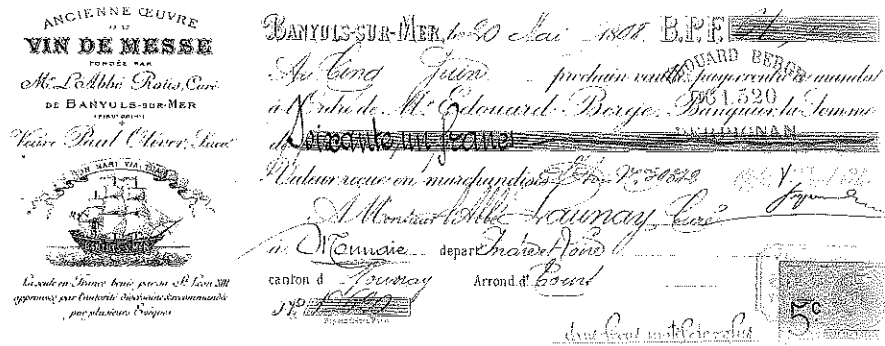 ANCIENNE ŒUVRE
DU
VIN DE MESSE
FONDÉE PAR
Mr L'Abbé Rous, Curé
DE BANYULS-SUR-MER
Veuve Paul Oliver, Succr
La seule en France bénie par sa St Léon XIII
approuvée par l'autorité diocésaine & recommandée
par plusieurs Evêques
BANYULS-SUR-MER, le 20 Mai B.P.F.
Au Cinq Juin prochain veuillez payer contre ce mandat
à l'Ordre de Mr Edouard Berge Banquier la Somme
de Soixante un francs
Valeur reçue en marchandises
A Monsieur l'Abbé Launay, Curé
à Monnaie départ Indre et Loire
canton d Arrond.t d' Tours
EDOUARD BERGE
PERPIGNAN
5c